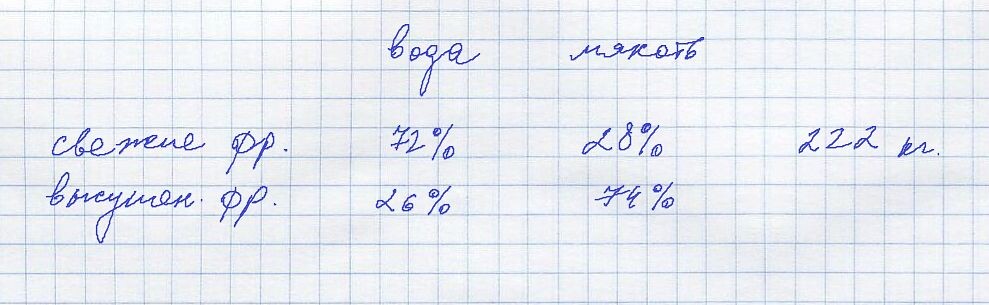 вода мякоть
свежие фр. 72% 28% 222 кг.
высушен. фр. 26% 74%